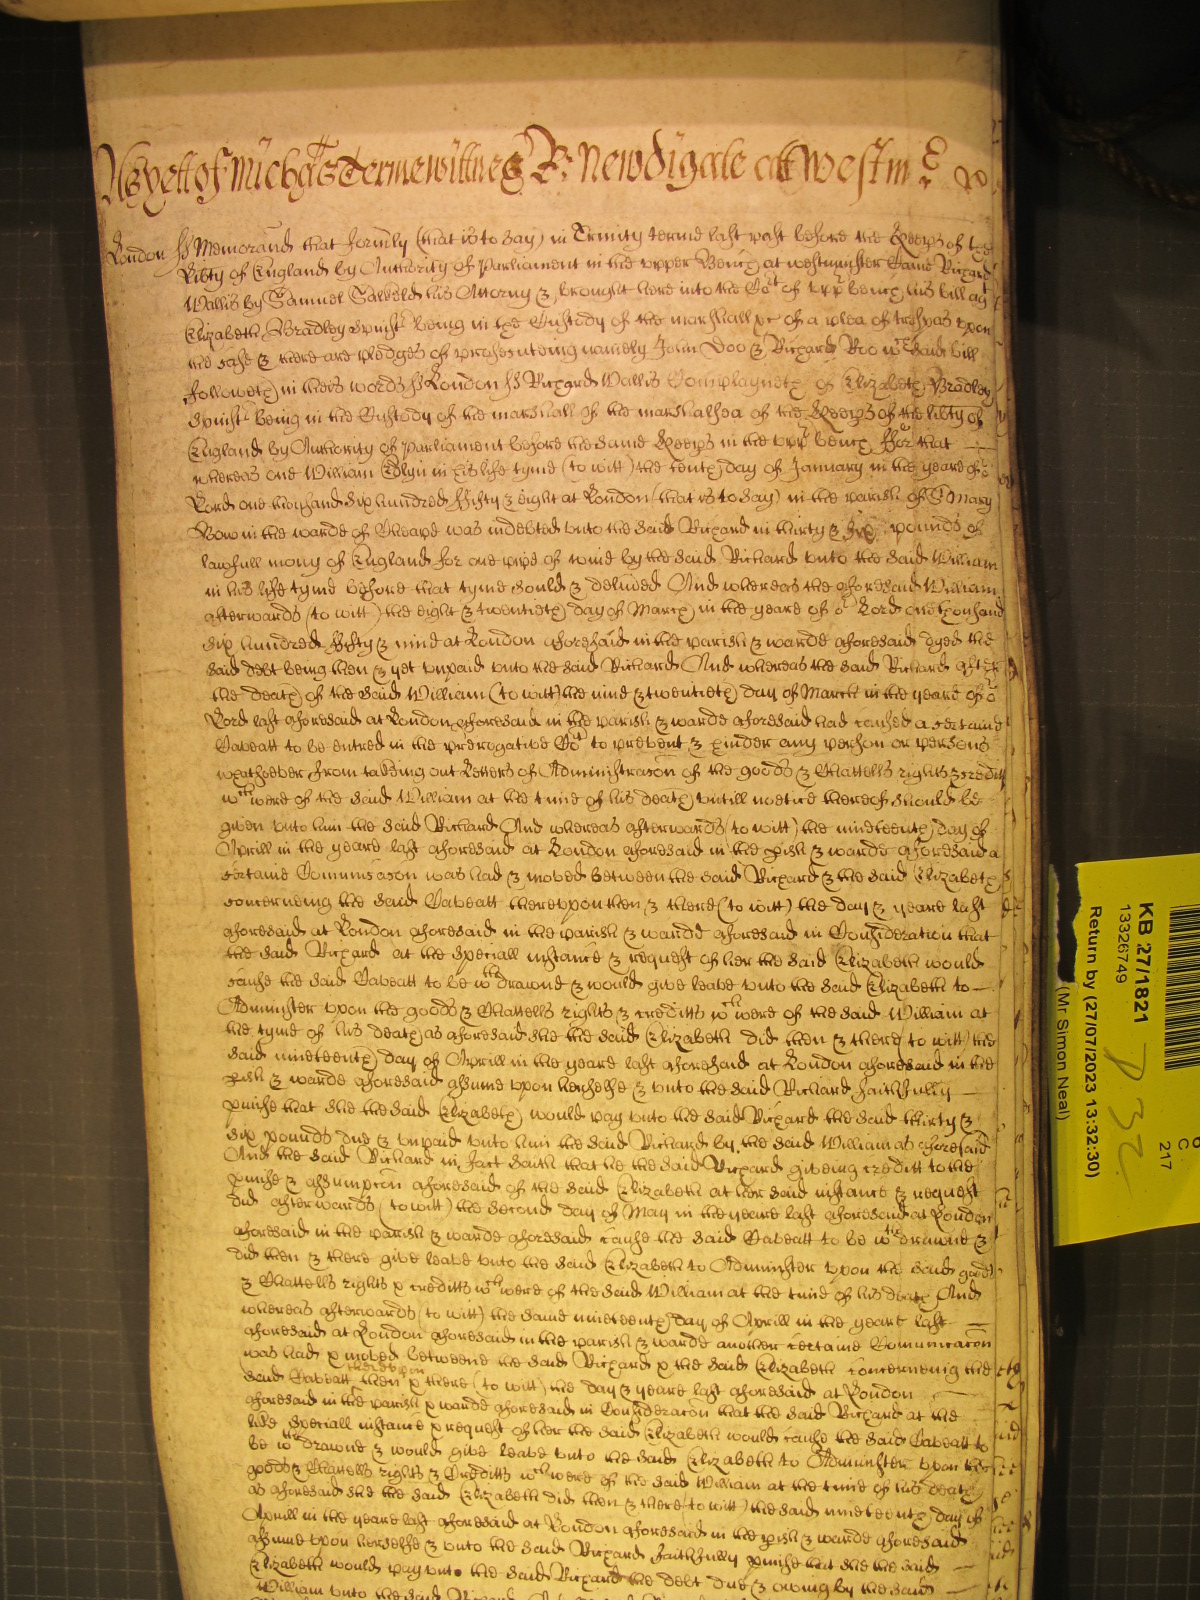 As yett of Michās Terme wittnes R: Newdigate att Westm
London ss Memorand that formly (that is to say) in Trinity terme last past before the Keeps of the
Libty of England by Authority of Parliament in the upper Bench at westminster Came Richard
Wallis by Samuel Salkeld his Attorny & brought here into the Cot of uppr bench his bill agt
Elizabeth Bradley Spinstr being in the Custody of the marshall &c of a plea of trespas upon
the case & there are pledges of prosecuteing namely John Doo & Richard Roo wch said bill
followeth in theis words ss London ss Richard Wallis Complayneth of Elizabeth Bradley
Spinstr being in the Custody of the marshall of the marshalsea of the Keeps of the libty of
England by Authority of Parliament before the same Keeps in the uppr bench ffor that
whereas one William in his life tyme (to witt) the tenth day of January in the yeare of or
Lord one thousand six hundred ffifty & eight at London (that is to say) in the parish of St Mary
Bow in the warde of Cheape was indebted unto the said Richard in thirty & six pounds of
lawfull mony of England for one pipe of wine by the said Richard unto the said William
in his life tyme before that tyme sould & delived And whereas the aforesaid William
afterwards (to witt) the eight & twentieth day of March in the yeare of or Lord one thousand
six hundred ffifty & nine at London aforesaid in the parish & warde aforesaid dyed the
said debt being then & yet unpaid unto the said Richard And whereas the said Richard after
the death of the said William (to witt) the nine & twentieth day of March in the yeare of or
Lord last aforesaid at London aforesaid in the parish & warde aforesaid had caused a certaine
Caveatt to be entred in the prerogative Cot to prevent & hinder any person or persons
whatsoever from takeing out Letters of Administracon of the goods & Chattells rights & creditts
wch were of the said William at the time of his death untill notice thereof should be
given unto him the said Richard And whereas afterwards (to witt) the nineteenth day of
Aprill in the yeare last aforesaid at London aforesaid in the pish & warde aforesaid a
certaine Communicacon was had & moved betweene the said Richard & the said Elizabeth
concerneing the said Caveatt thereupon then & there (to witt) the day & yeare last
aforesaid at London aforesaid in the parish & warde aforesaid in Consideration that
the said Richard at the speciall instance & request of her the said Elizabeth would
cause the said Caveatt to be wthdrawne & would give leave unto the said Elizabeth to
Administer upon the goods & Chattells rights & creditts wch were of the said William at
the tyme of his death as aforesaid she the said Elizabeth did then & there (to witt) the
said nineteenth day of Aprill in the yeare last aforesaid at London aforesaid in the
pish & warde aforesaid assume upon herselfe & unto the said Richard faithfully
pmise that she the said Elizabeth would pay unto the said Richard the said thirty &
six pounds due & unpaid unto him the said Richard by the said William as aforesaid
And the said Richard in fact saith that he the said Richard giveing creditt to the
pmise & assumpcon aforesaid of the said Elizabeth at her said instance & request
did afterwards (to witt) the second day of May in the yeare last aforesaid at London
aforesaid in the parish & warde aforesaid cause the said Caveatt to be wthdrawne &
did then & there give leave unto the said Elizabeth to Administer upon the said goods
& Chattells rights & creditts wch were of the said William at the time of his death And
whereas afterwards (to witt) the same nineteenth day of Aprill in the yeare last
aforesaid at London aforesaid in the parish & warde another certaine Comunicacon
was had & moved betweene the said Richard & the said Elizabeth concerneing the
said Caveatt thereupon then & there (to witt) the day & yeare last aforesaid at London
aforesaid in the parish & warde aforesaid in Consideracon that the said Richard at the
like speciall instance & request of her the said Elizabeth would cause the said Caveatt to
be wthdrawne & would give leave unto the said Elizabeth to Administer upon the
goods & Chattells rights & Creditts wch were of the said William at the time of his death
as aforesaid she the said Elizabeth did then & there (to witt) the said nineteenth day of
Aprill in the yeare last aforesaid at London aforesaid in the pish & warde aforesaid
assume upon herselfe & unto the said Richard faithfully pmise that she the said
Elizabeth would pay unto the said Richard the debt due & owing by the said
William unto the said
KB 27/1821
13326749
Return by (27/07/2023 13:32:30)
(Mr Simon Neal)
217